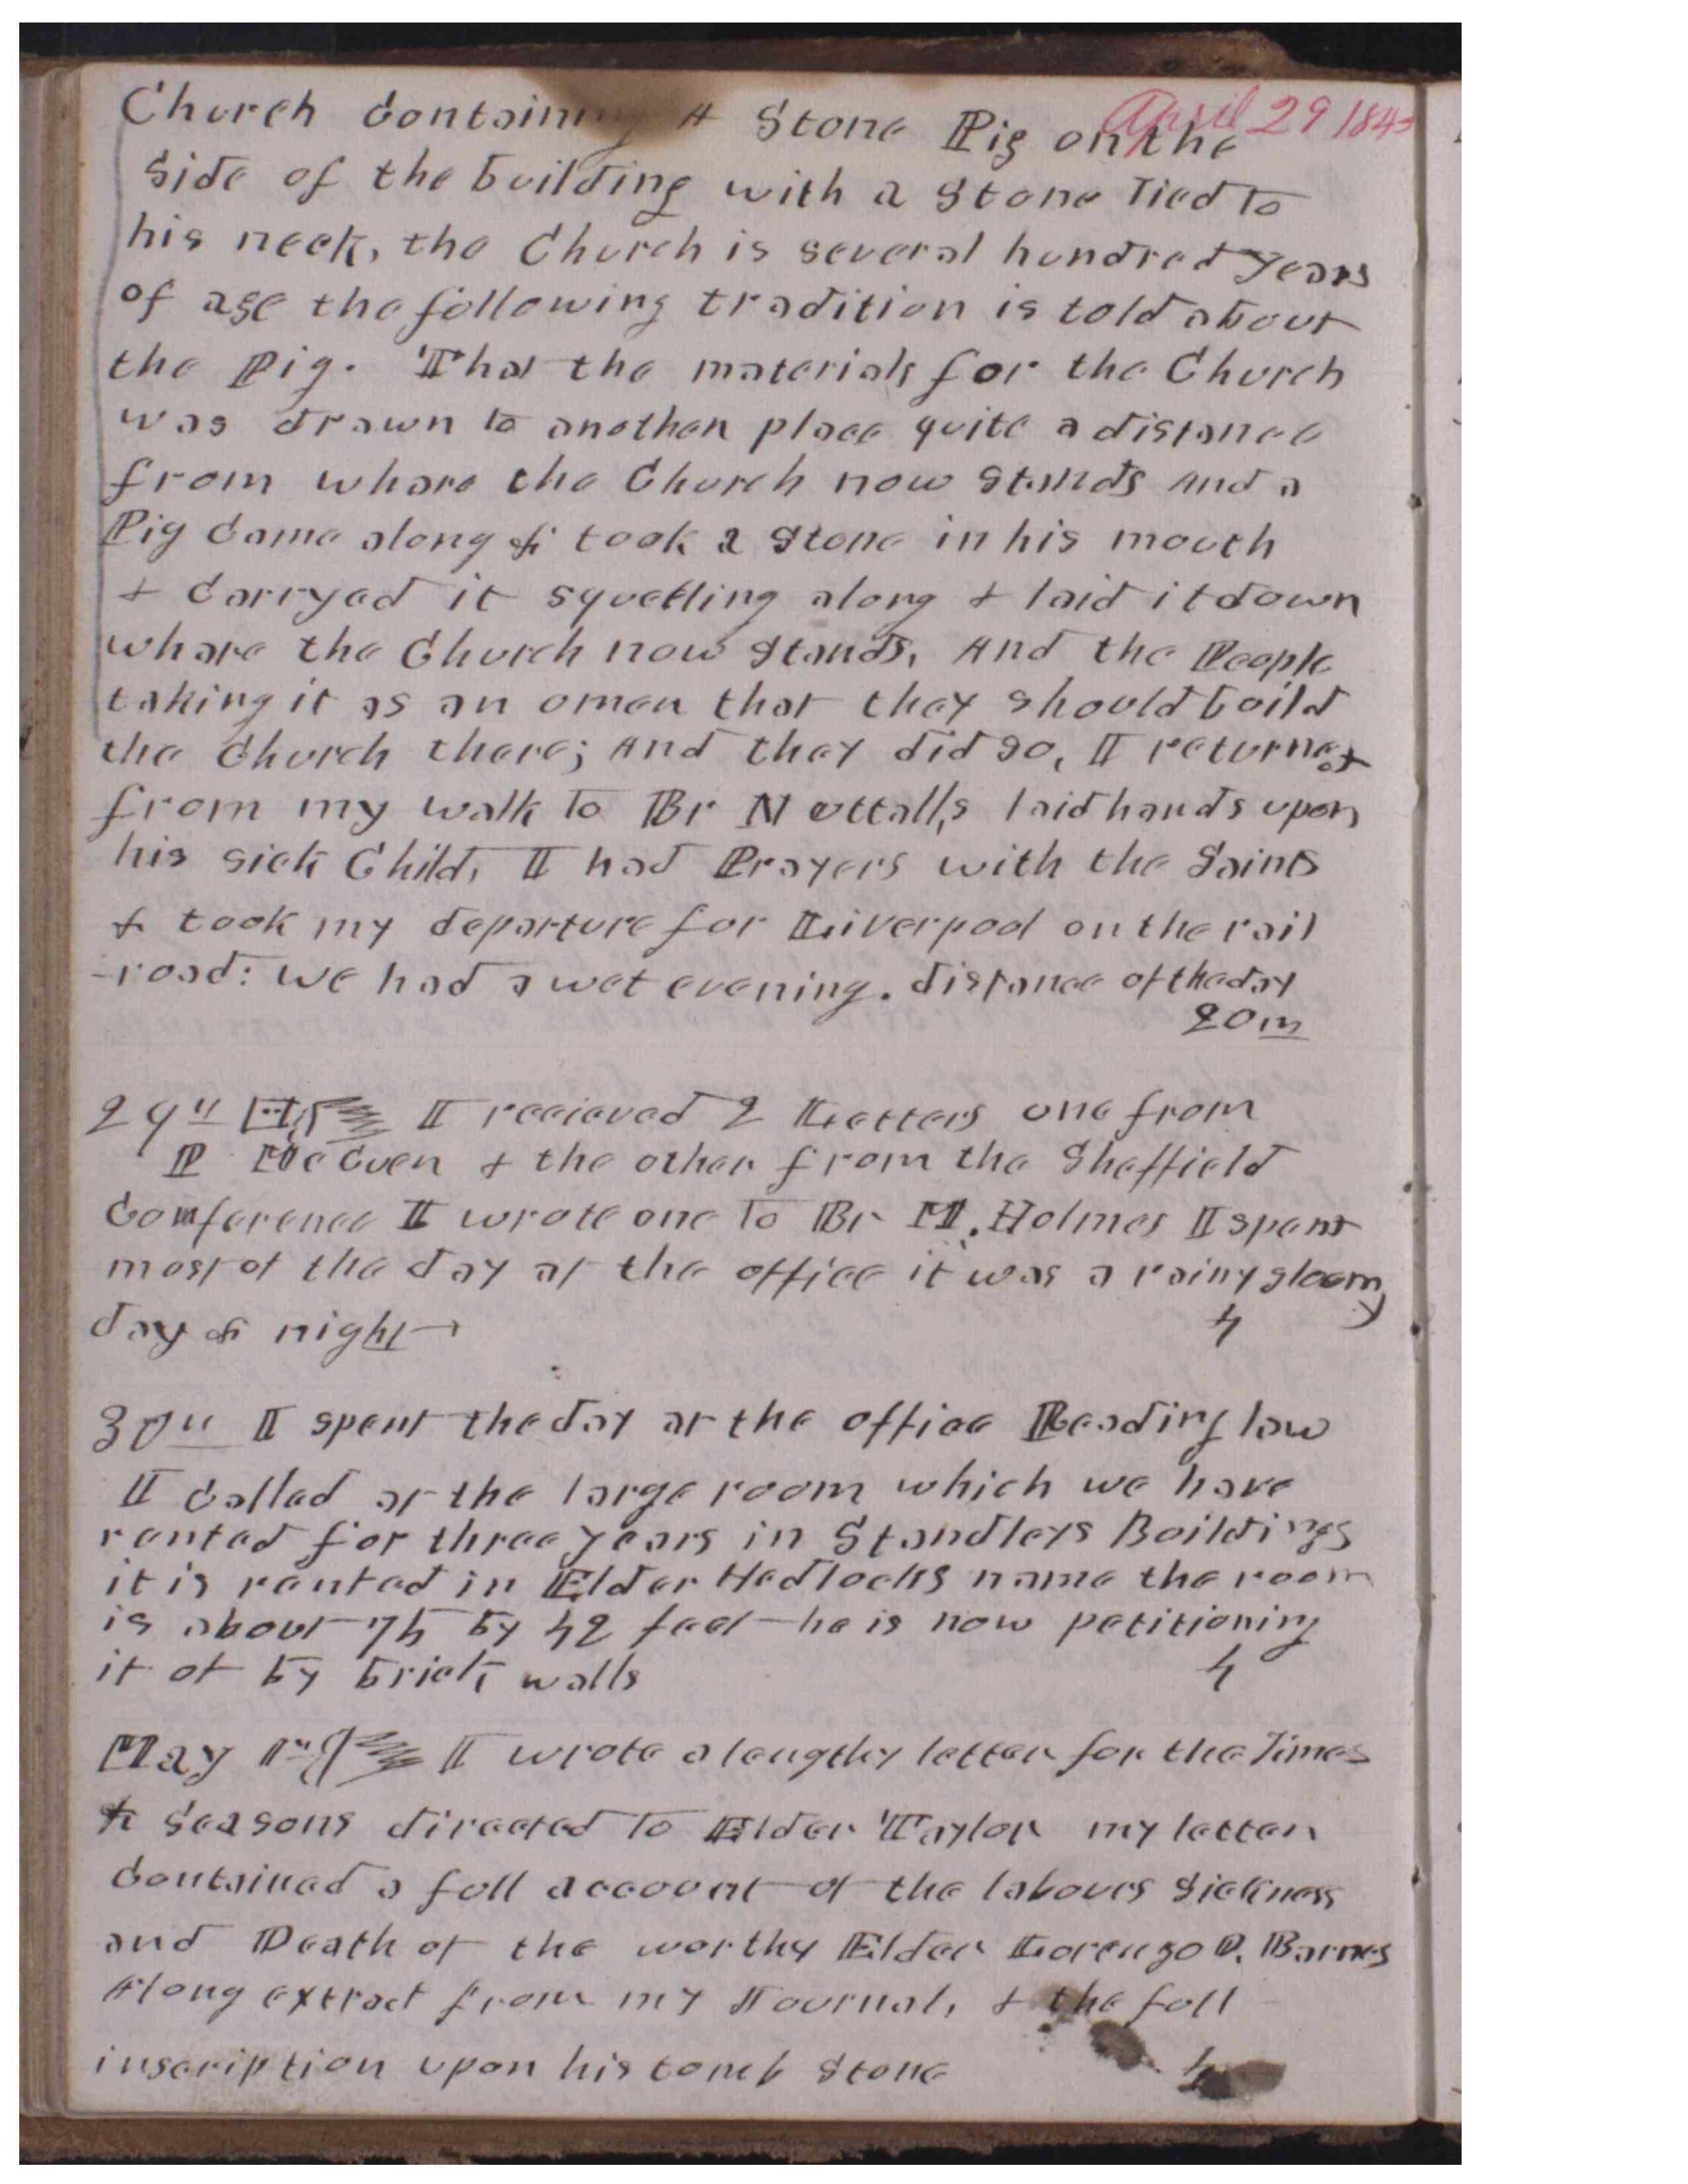 April 29 1845
Church Containing A Stone Pig on the
side of the building with a Stone Tied To
his neck, the Church is several hundred years
of age the following tradition is told about
the Pig. That the materials for the Church
was drawn to another place quite a distance
from whare the Church now Stands And a
Pig Came along & took a Stone in his mouth
& Carryed it squeeling along & laid it down
whare the Church now Stands, And the People
taking it as an omen that they should build
the Church there; And they did so, I returned
from my walk To Br Nuttalls, laid hands upon
his sick Child, I had Prayers with the Saints
& took my departure for Liverpool on the rail
-road: we had a wet evening. distance of the day
20 m
29th I recieved 2 Letters one from
P McCuen & the other from the Sheffield
Comference I wrote one To Br M. Holmes I spent
most of the day at the office it was a rainy gloomy
day & night 4
30th I spent the day at the office Reading law
I Called at the large room which we have
rented for three years in Standleys Buildings
it is rented in Elder Hedlocks name the room
is about 75 by 42 feet he is now petitioning
it of by brick walls 4
May 1st I wrote a lengthy letter for the Times
& Seasons directed To Elder Taylor my letter
Contained a full account of the labours Sickness
and Death of the worthy Elder Lorenzo D. Barnes
A long extract from my Journal, & the full
inscription upon his tomb Stone 4